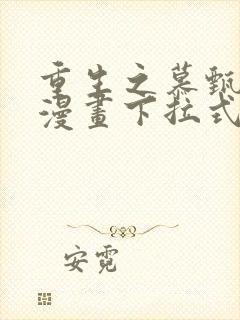 重生之慕甄
漫畫下拉式
安霓